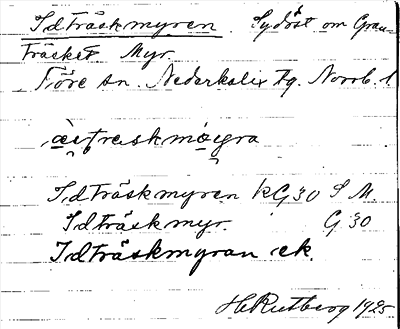 Idträskmyren. Sydöst om Gran-
träsket Myr.
Töre sn. Nederkalix tg. Norrb. l.
Idträskmyren KG 30 S M.
Idträskmyr. G 30
Idträskmyran ek.
H Rutberg 1925